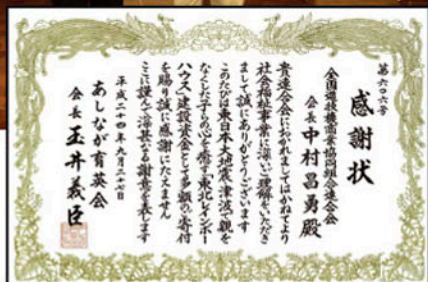 第六〇六号
感謝状
全国遊技機商業協同組合連合会
会長 中村昌勇殿
貴連合会におかれましてはかねてより
社会福祉事業に深いご理解をいただき
まして誠にありがとうございます
このたびは東日本大地震・津波で親を
なくした子らの心を癒す"東北レインボー
ハウス"建設資金として多額のご寄付
を賜り誠に感謝にたえません
ここに謹んで深甚なる謝意を表します
平成二十四年九月二十七日
あしなが育英会
会長 玉井義臣